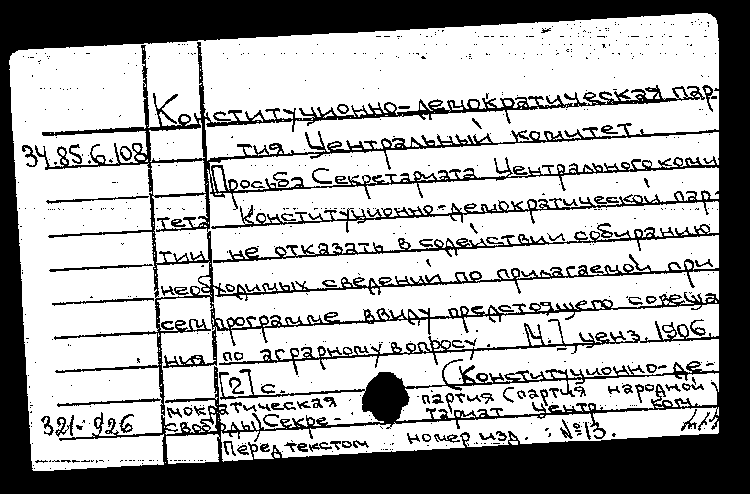 Конституционно-демократическая пар-
34.85.6.108 тия. Центральный комитет.
[Просьба Секретариата Центрального коми-
тета Конституционно-демократической пар-
тии не отказать в содействии собиранию
необходимых сведений по прилагаемой при
сем программе ввиду предстоящего совеща
ния по аграрному вопросу. М.], ценз. 1906.
[2] с. (Конституционно-де-
мократическая партия (партия народной
свободы) Секре- тариат Центр. ком.
321-926
Перед текстом номер изд.: №13.